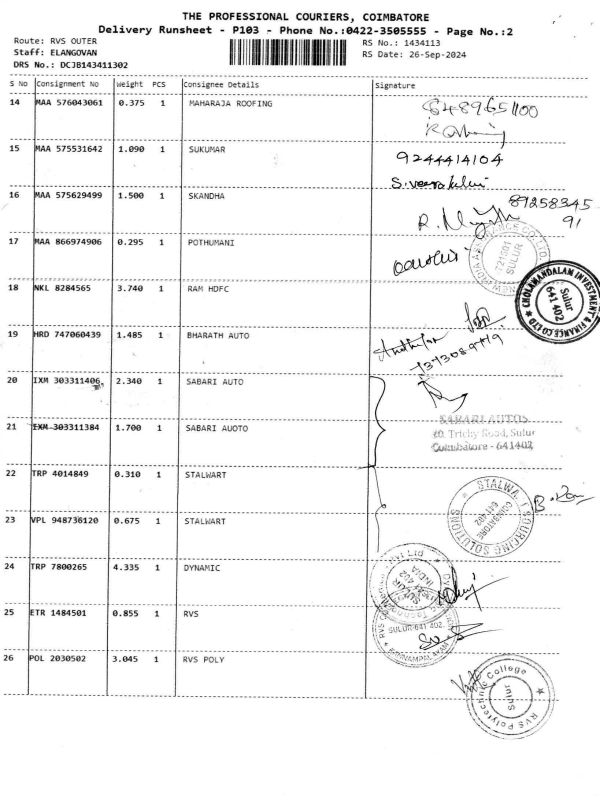 THE PROFESSIONAL COURIERS, COIMBATORE
Delivery Runsheet - P103 - Phone No.:0422-3505555 - Page No.:2
Route: RVS OUTER
Staff: ELANGOVAN
DRS No.: DCJB143411302
RS No.: 1434113
RS Date: 26-Sep-2024
S No Consignment No Weight PCS Consignee Details Signature
14 MAA 576043061 0.375 1 MAHARAJA ROOFING
8489651100
15 MAA 575531642 1.090 1 SUKUMAR 9244414104
16 MAA 575629499 1.500 1 SKANDHA 89258345
91
17 MAA 866974906 0.295 1 POTHUMANI
SULUR
18 NKL 8284565 3.740 1 RAM HDFC
CHOLAMANDALAM INVESTMENT & FINANCE CO LTD
Sulur
641 402
19 HRD 747060439 1.485 1 BHARATH AUTO
20 IXM 303311406 2.340 1 SABARI AUTO
21 IXM 303311384 1.700 1 SABARI AUOTO
SABARI AUTOS
Trichy Road, Sulur
Coimbatore - 641402
22 TRP 4014849 0.310 1 STALWART
23 VPL 948736120 0.675 1 STALWART
SOURCING SOLUTIONS
COIMBATORE
641 402
24 TRP 7800265 4.335 1 DYNAMIC
SULUR
INDIA
25 ETR 1484501 0.855 1 RVS
SULUR-641 402.
KANNAMPALAYAM
26 POL 2030502 3.045 1 RVS POLY
RVS Polytechnic College
Sulur